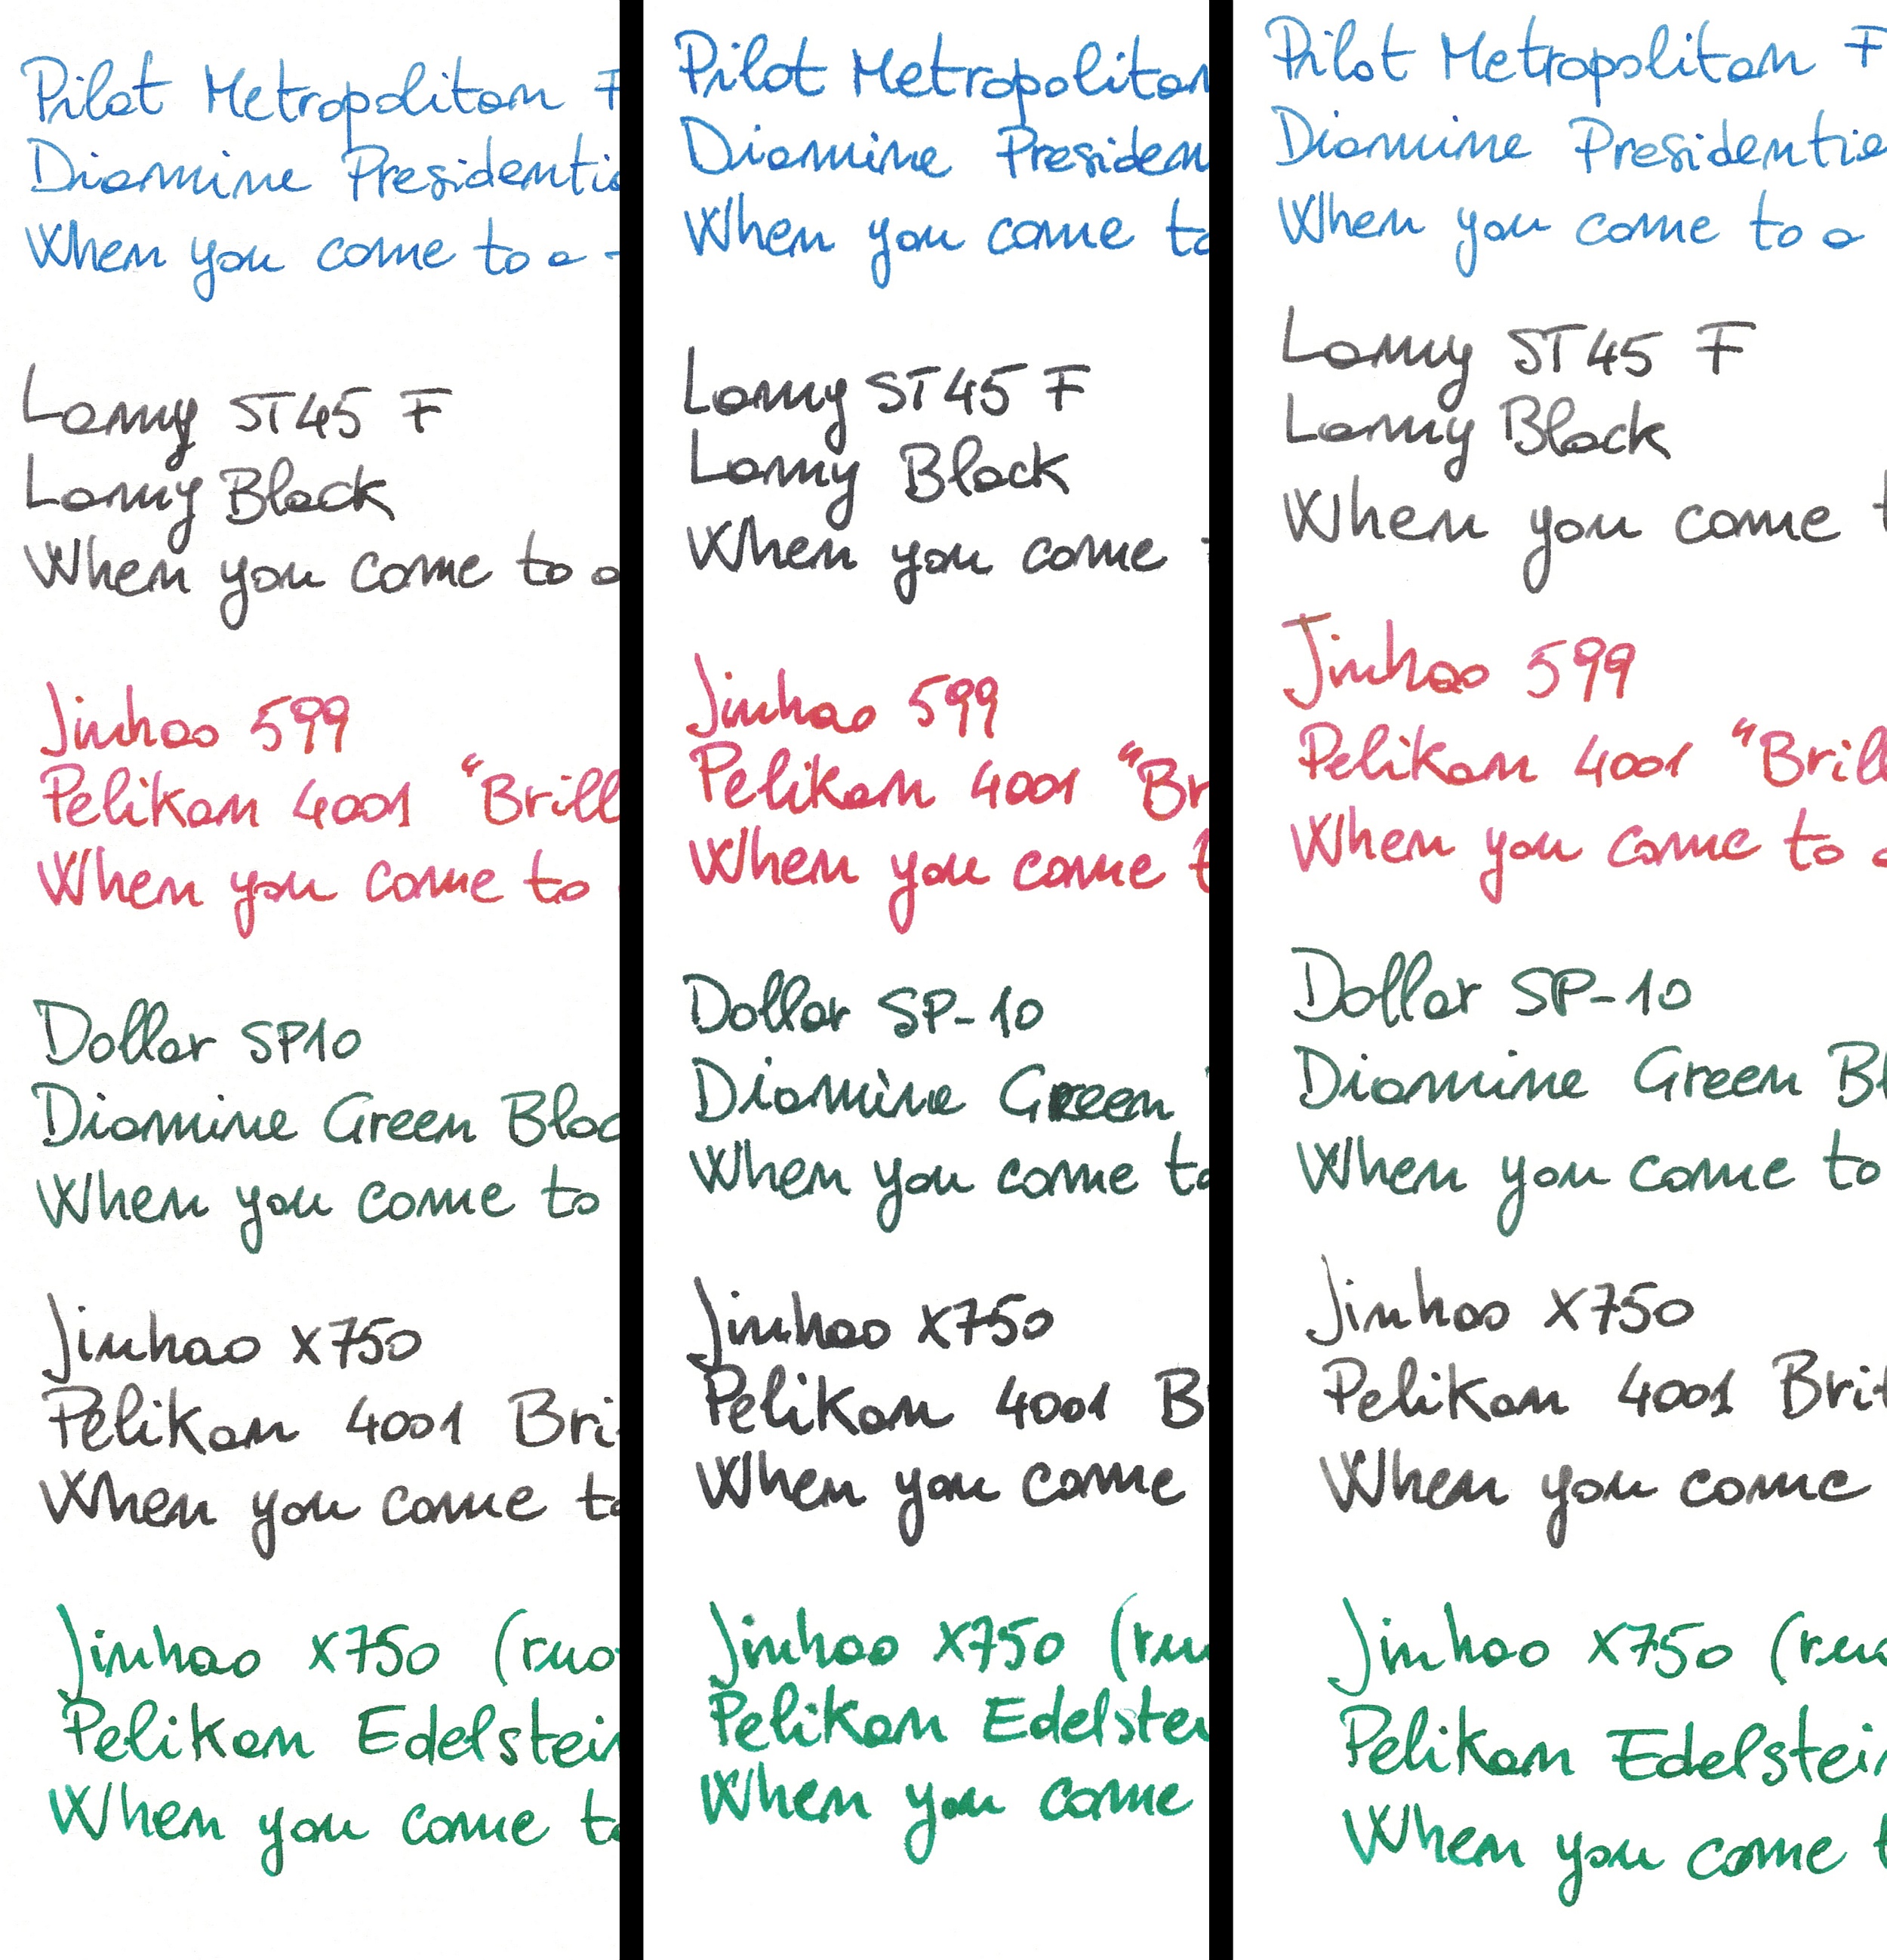 Pilot Metropolitan F
Diamine Presidentia
When you come to a
Lamy ST45 F
Lamy Black
When you come to a
Jinhao 599
Pelikan 4001 "Brill
When you come to
Dollar SP10
Diamine Green Blac
When you come to
Jinhao X750
Pelikan 4001 Bri
When you come to
Jinhao X750 (ruo
Pelikan Edelstein
When you come to
Pilot Metropolitan
Diamine Presiden
When you come to
Lamy ST45 F
Lamy Black
When you come
Jinhao 599
Pelikan 4001 "Br
When you come t
Dollar SP-10
Diamine Green
When you come to
Jinhao X750
Pelikan 4001 B
When you come
Jinhao X750 (ru
Pelikan Edelstei
When you come
Pilot Metropolitan F
Diamine Presidentia
When you come to a
Lamy ST45 F
Lamy Black
When you come t
Jinhao 599
Pelikan 4001 "Brill
When you come to a
Dollar SP-10
Diamine Green Bl
When you come to
Jinhao X750
Pelikan 4001 Bril
When you come
Jinhao X750 (ruo
Pelikan Edelstein
When you come t